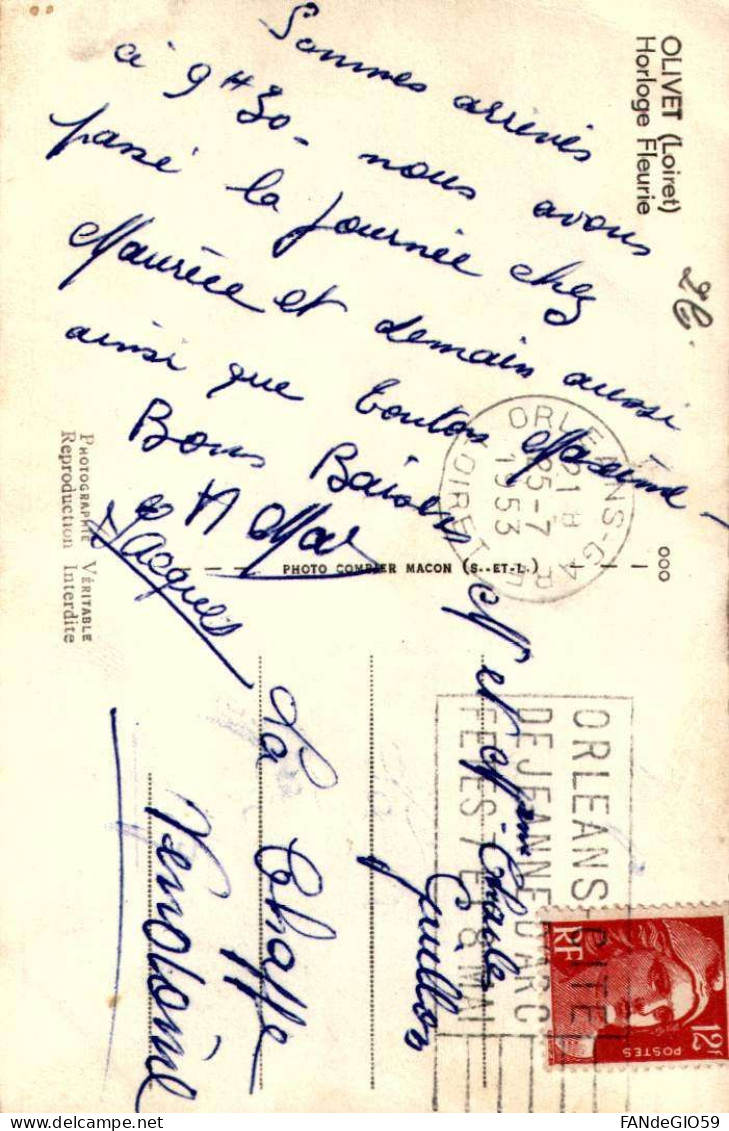 OLIVET (Loiret)
Horloge Fleurie
Sommes arrivés
à 9H30 - nous avons
passé la journée chez
Maurice et demain aussi
ainsi que tonton Maxime -
Bons Baisers
Jacques
PHOTOGRAPHIE VÉRITABLE
Reproduction Interdite
PHOTO COMBIER MACON (S.-ET-L.)
000
ORLEANS-GARE
21H
25-7
1953
LOIRET
ORLEANS-CITE
DE JEANNE D'ARC
FETES 7 ET 8 MAI
RF
12F
POSTES
Mr et Mme Charles
Guillon
La Chappe
Vendômil
FANdeGIO59